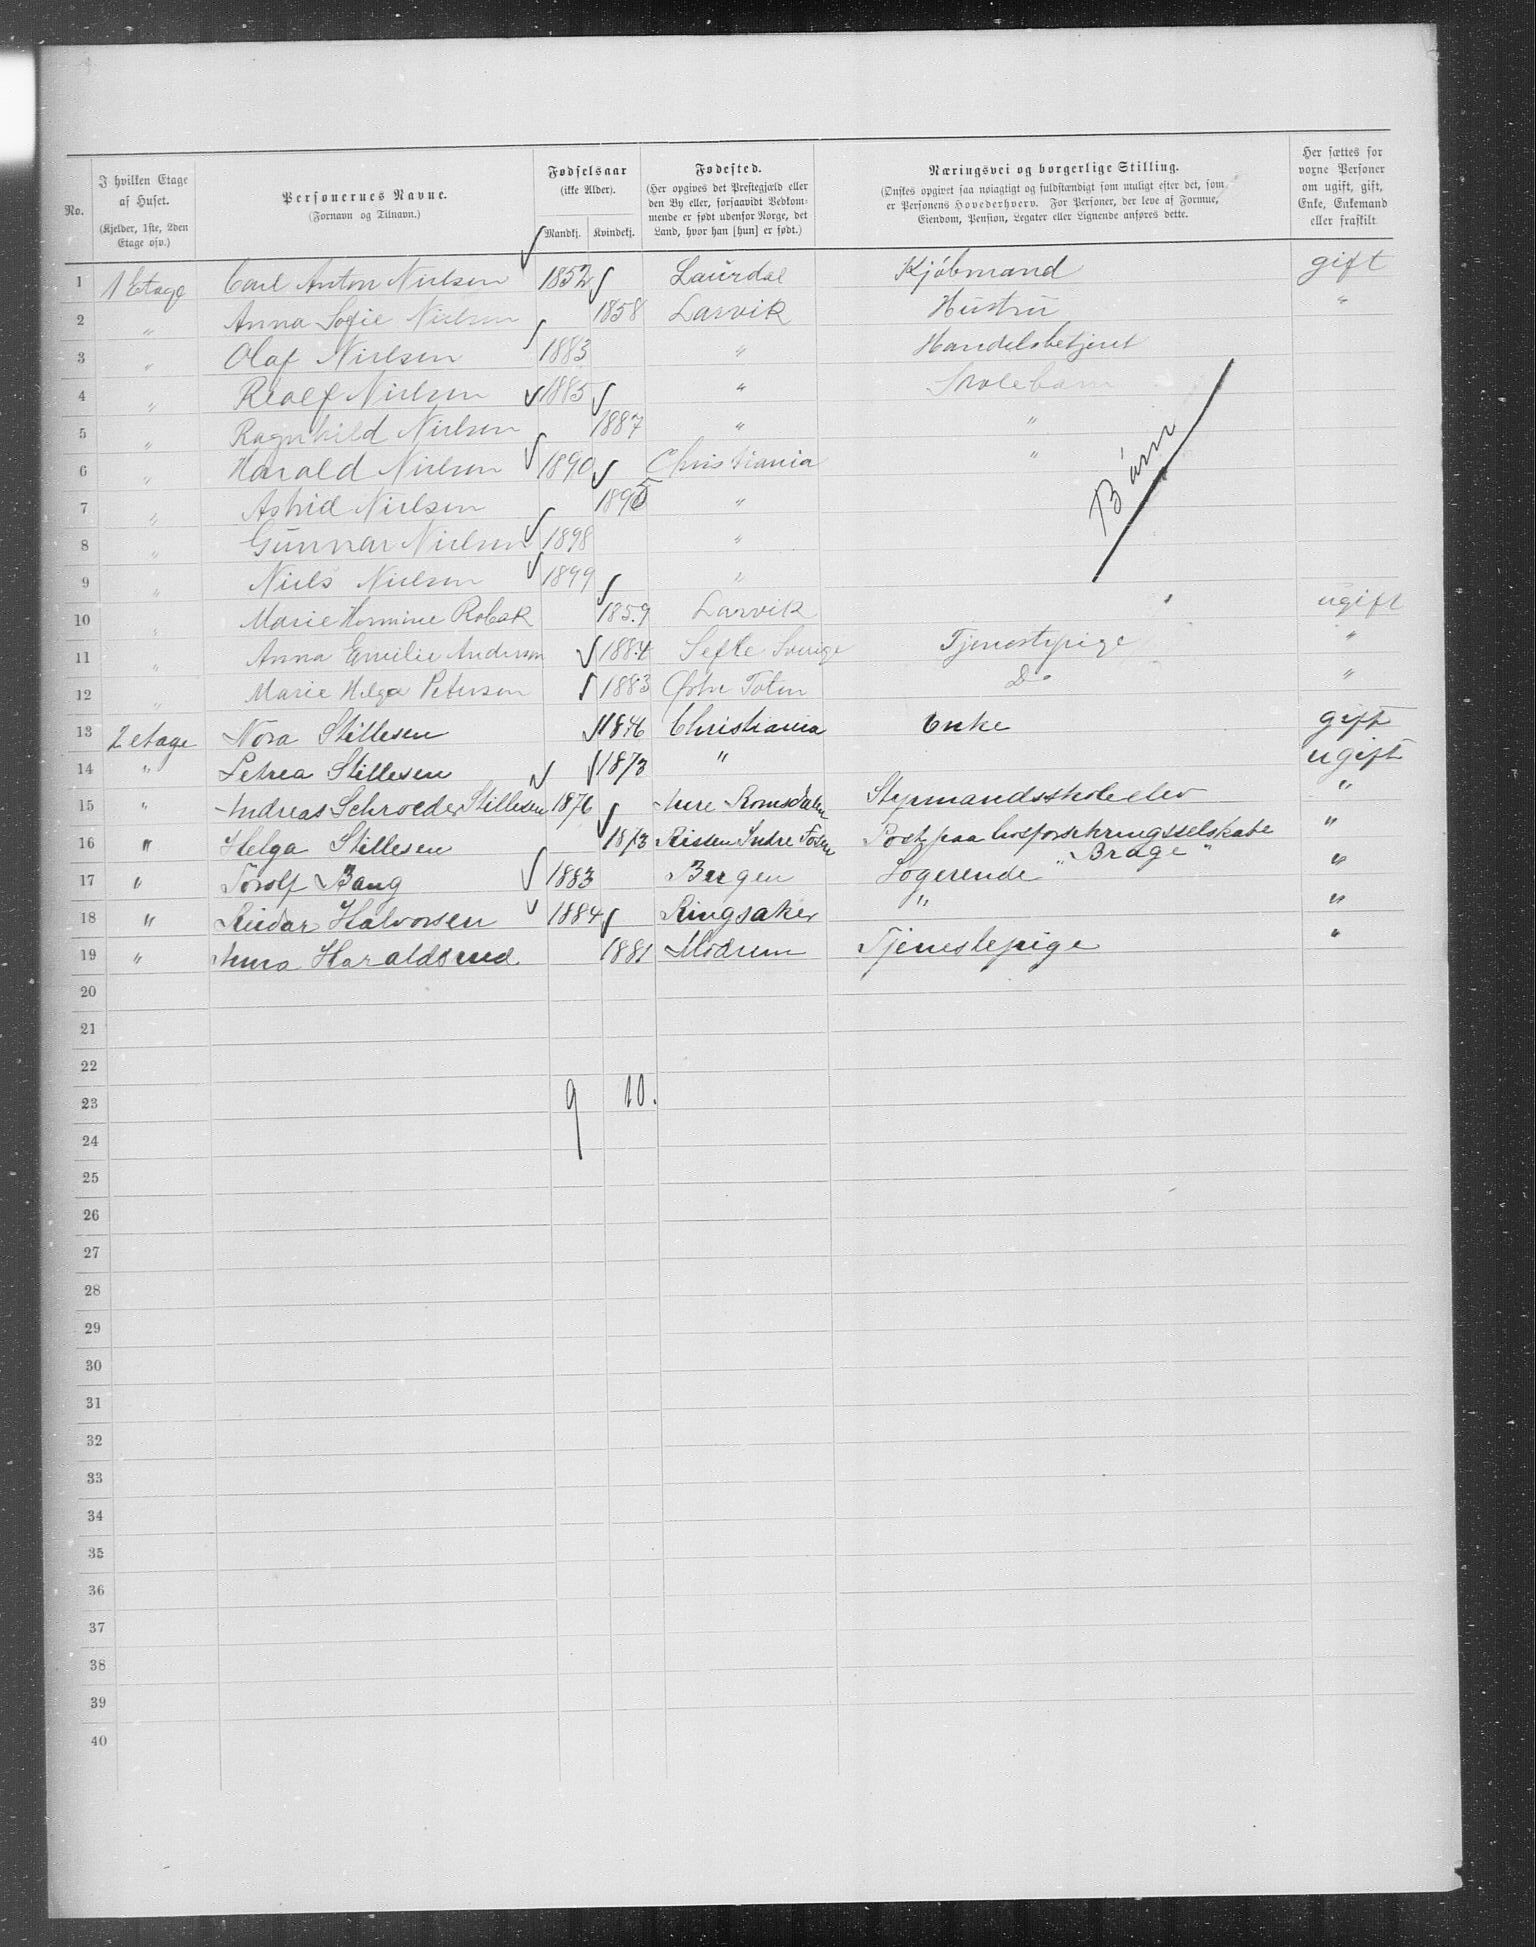 No.
I hvilken Etage af Huset.
(Kjelder, 1ste, 2den Etage osv.)
Personernes Navne.
(Fornavn og Tilnavn.)
Fødselsaar
(ikke Alder).
Mandkj. Kvindekj.
Fødested.
(Her opgives det Prestegjæld eller den By eller, forsaavidt Vedkommende er født udenfor Norge, det Land, hvor han [hun] er født.)
Næringsvei og borgerlige Stilling.
(Ønskes opgivet saa nøiagtigt og fuldstændigt som muligt efter det, som er Personens Hovederhverv. For Personer, der leve af Formue, Eiendom, Pension, Legater eller Lignende anføres dette.
Her sættes for voxne Personer om ugift, gift, Enke, Enkemand eller fraskilt
1 1 Etage Carl Anton Nielsen 1852 Laurdal Kjöbmand gift
2 " Anna Sofie Nielsen 1858 Larvik Hustru "
3 " Olaf Nielsen 1883 " Handelsbetjent
4 " Rolf Nielsen 1885 " Skolebarn
5 " Ragnhild Nielsen 1887 " "
6 " Harald Nielsen 1890 Christiania "
7 " Astrid Nielsen 1895 "
Börn
8 " Gunnar Nielsen 1898 "
9 " Niels Nielsen 1899 "
10 " Marie Hermine 1859 Larvik ugift
11 " Anna Emilie Andersen 1884 Sefle Sverige Tjenestepige "
12 " Marie Helga Petersen 1883 Østre Toten Do "
13 2 etage Nora Stillesen 1846 Christiania Enke gift
14 " Petrea Stillesen 1873 " ugift
15 " Andreas Schroeder Stillesen 1876 Aure Romsdalen Styrmandsskoleelev "
16 " Helga Stillesen 1873 Rissen Indre Fosen paa livsforsikringsselskabe "Brage" "
17 " Torolf Bang 1883 Bergen Logerende "
18 " Reidar Halvorsen 1884 Ringsaker " "
19 " Anna Haraldsrud 1881 Modum Tjenestepige "
20
21
22
23 9 10.
24
25
26
27
28
29
30
31
32
33
34
35
36
37
38
39
40